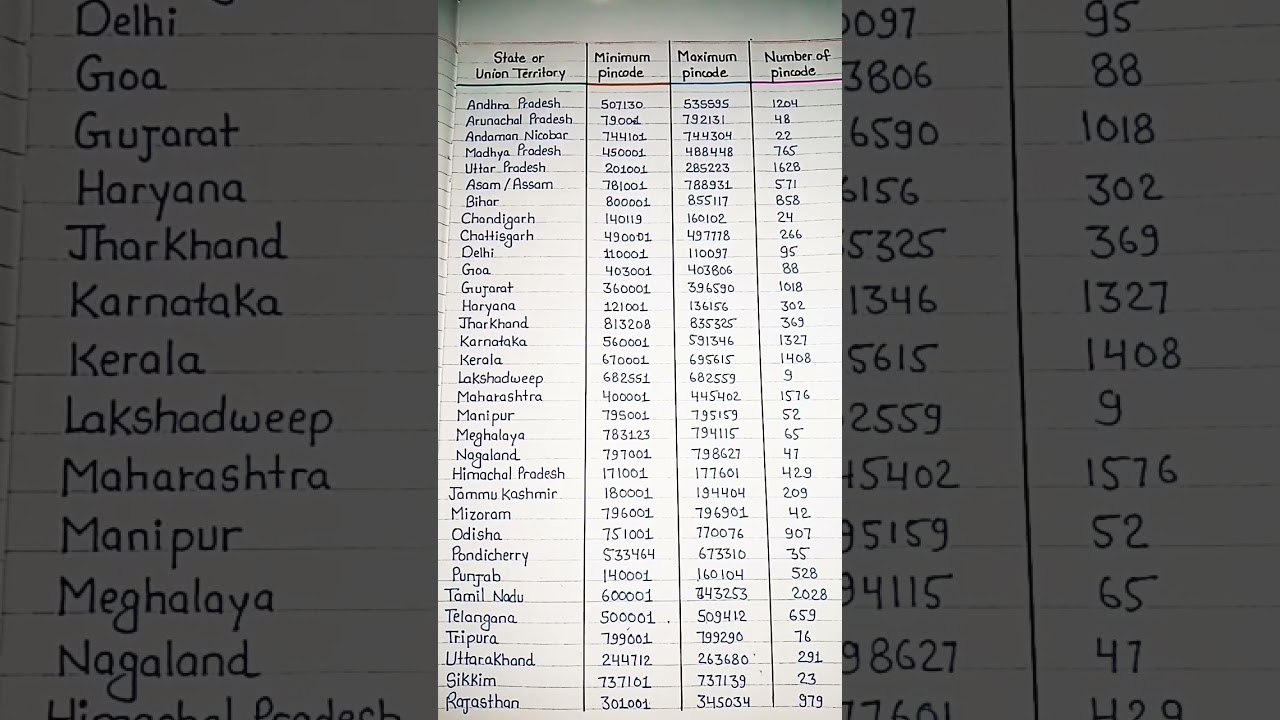 State or Union Territory Minimum pincode Maximum pincode Number of pincode
Andhra Pradesh 507130 535595 1204
Arunachal Pradesh 79001 792131 48
Andaman Nicobar 744101 744304 22
Madhya Pradesh 450001 488448 765
Uttar Pradesh 201001 285223 1628
Asam/Assam 781001 788931 571
Bihar 800001 855117 858
Chandigarh 140119 160102 24
Chattisgarh 490001 497778 266
Delhi 110001 110097 95
Goa 403001 403806 88
Gujarat 360001 396590 1018
Haryana 121001 136156 302
Jharkhand 813208 835325 369
Karnataka 560001 591346 1327
Kerala 670001 695615 1408
Lakshadweep 682551 682559 9
Maharashtra 400001 445402 1576
Manipur 795001 795159 52
Meghalaya 783123 794115 65
Nagaland 797001 798627 47
Himachal Pradesh 171001 177601 429
Jammu Kashmir 180001 194404 209
Mizoram 796001 796901 42
Odisha 751001 770076 907
Pondicherry 533464 673310 35
Punjab 140001 160104 528
Tamil Nadu 600001 843253 2028
Telangana 500001 509412 659
Tripura 799001 799290 76
Uttarakhand 244712 263680 291
Sikkim 737101 737139 23
Rajasthan 301001 345034 979
Delhi 0097 95
Goa 3806 88
Gujarat 6590 1018
Haryana 6156 302
Jharkhand 5325 369
Karnataka 1346 1327
Kerala 5615 1408
Lakshadweep 2559 9
Maharashtra 45402 1576
Manipur 95159 52
Meghalaya 94115 65
Nagaland 98627 47
Himachal Pradesh 77601 429